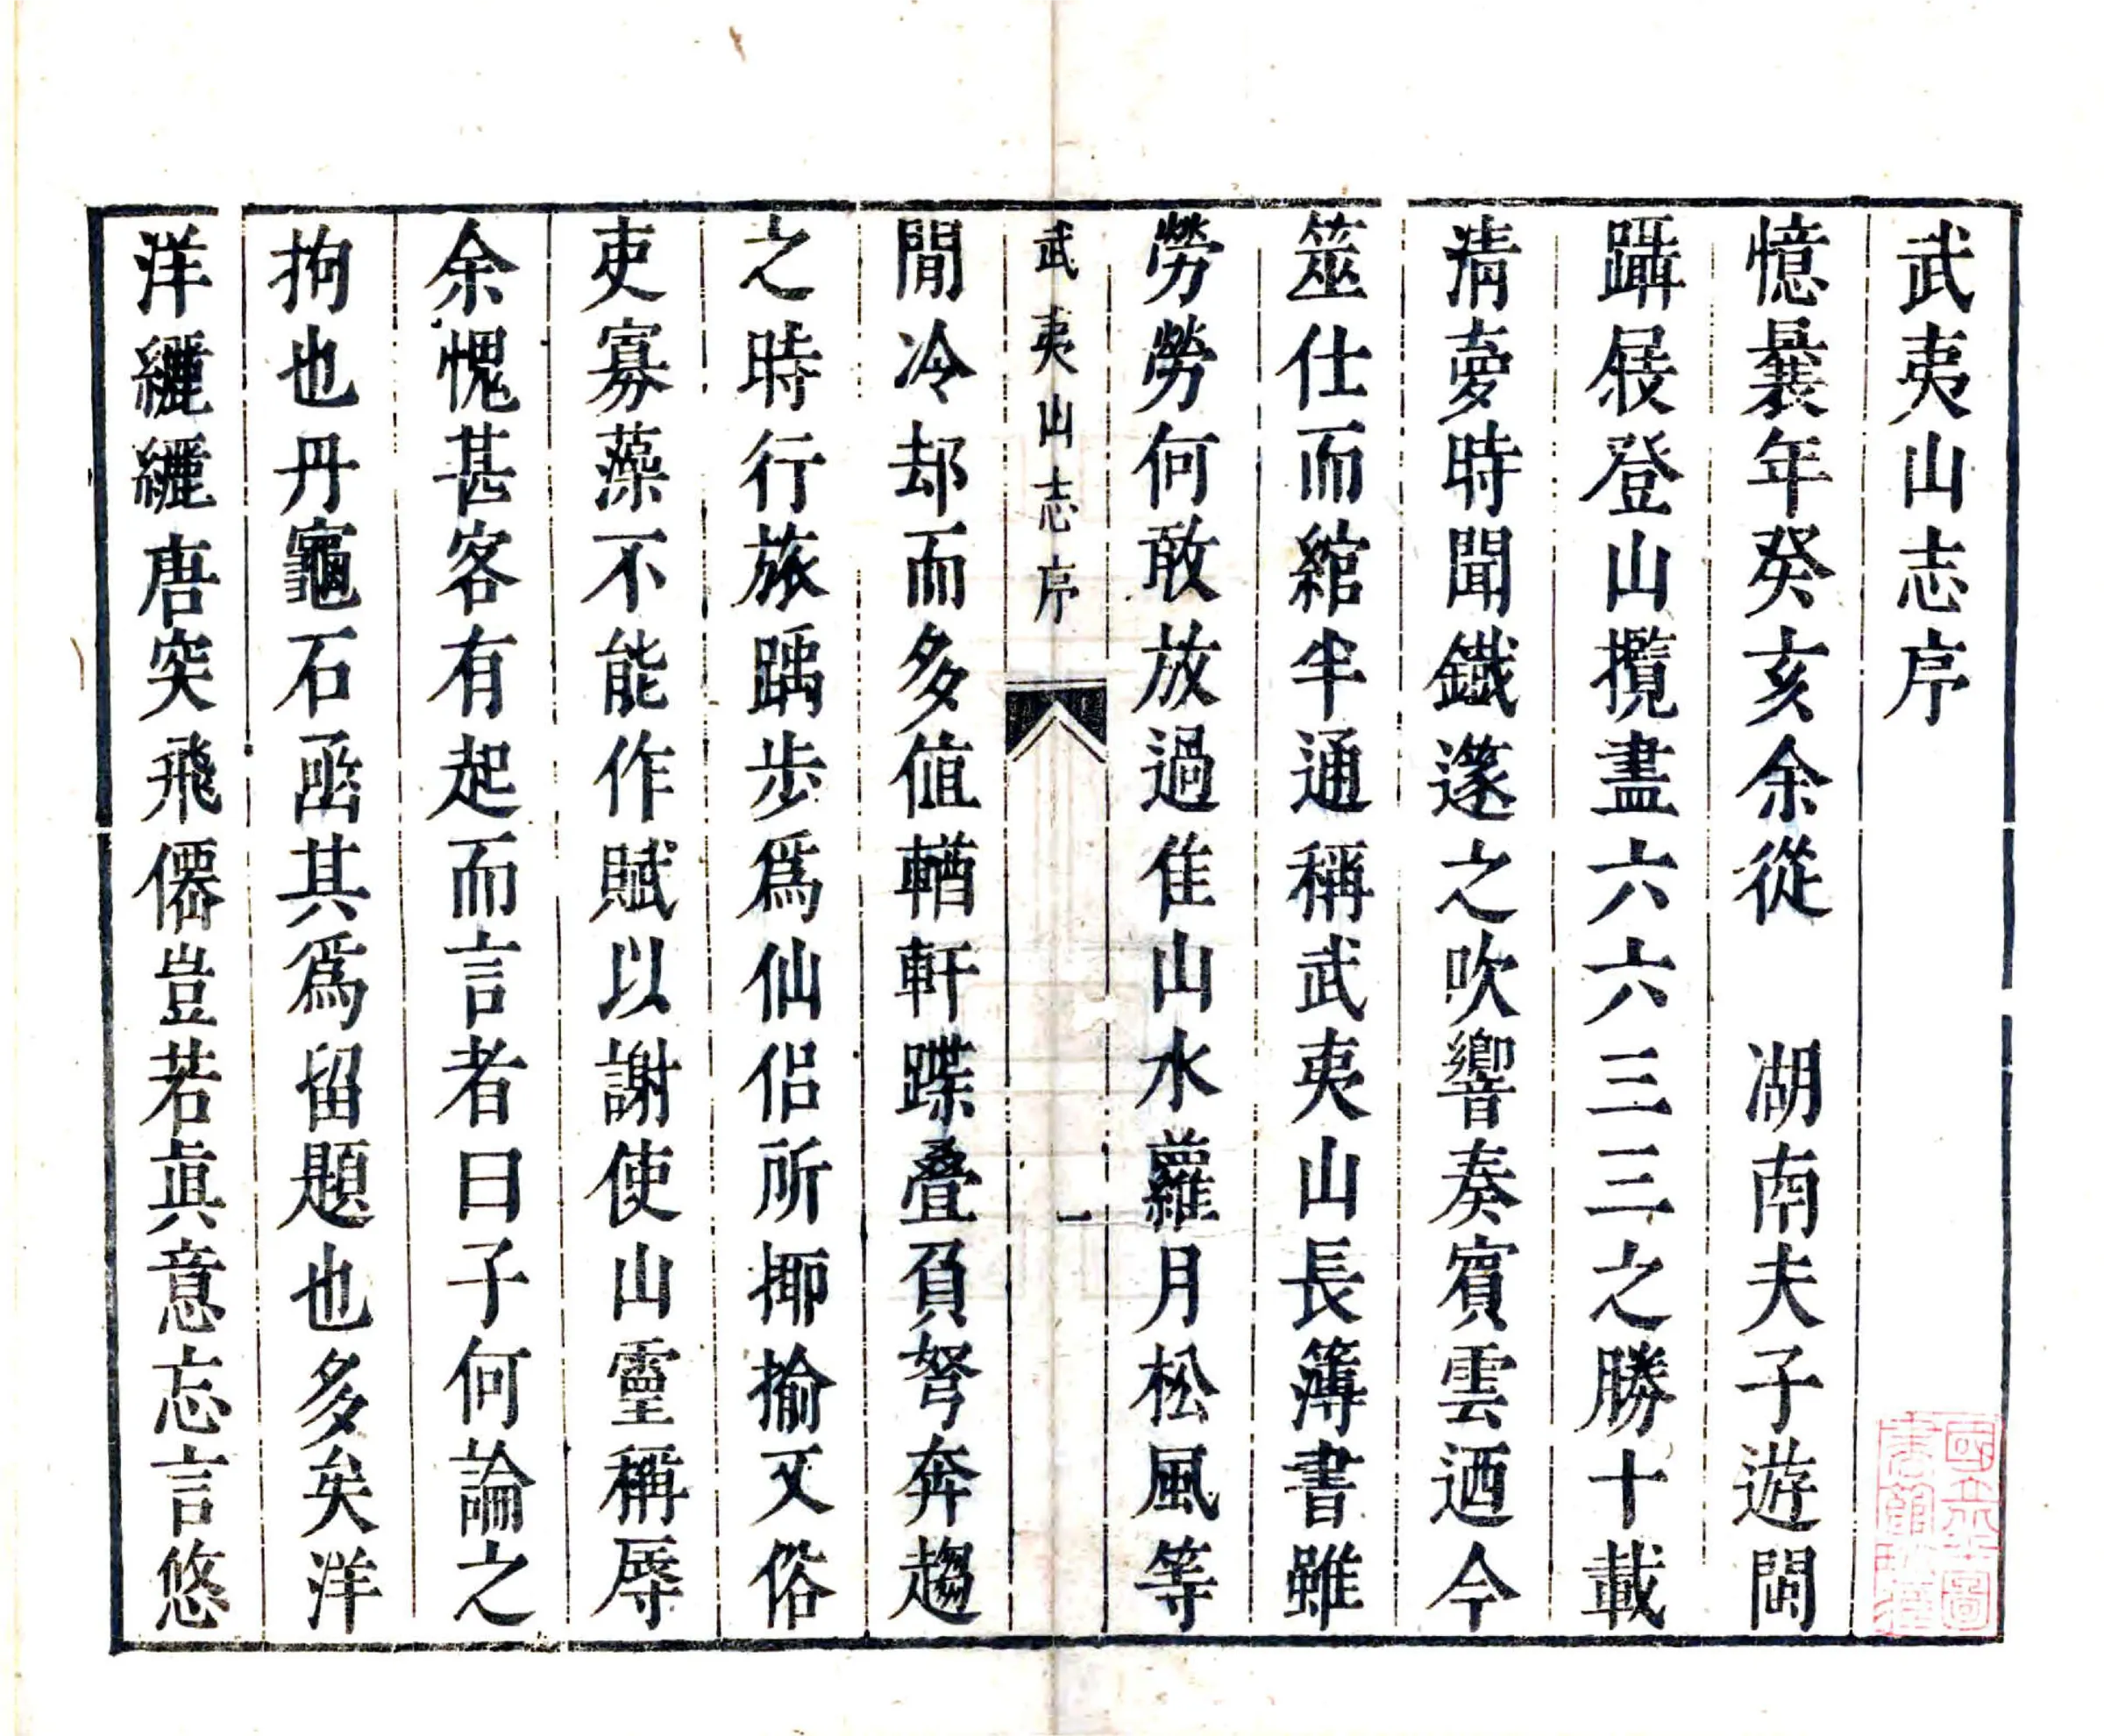 武夷山志序
憶曩年癸亥余從　湖南夫子遊閩
躡屐登山攬盡六六三三之勝十載
淸夢時聞鐵邃之吹響奏賓雲迺今
筮仕而綰半通稱武夷山長簿書雖
勞勞何敢放過隹山水蘿月松風等
閒冷却而多値輶軒蹀疊負弩奔趨
之時行旅踽步爲仙侶所揶揄又俗
吏寡藻不能作賦以謝使山靈稱辱
余愧甚客有起而言者曰子何論之
拘也丹龜石函其爲留題也多矣洋
洋纚纚唐突飛僊豈若眞意忘言悠
武夷山志序
一
國立北平圖
書館所藏